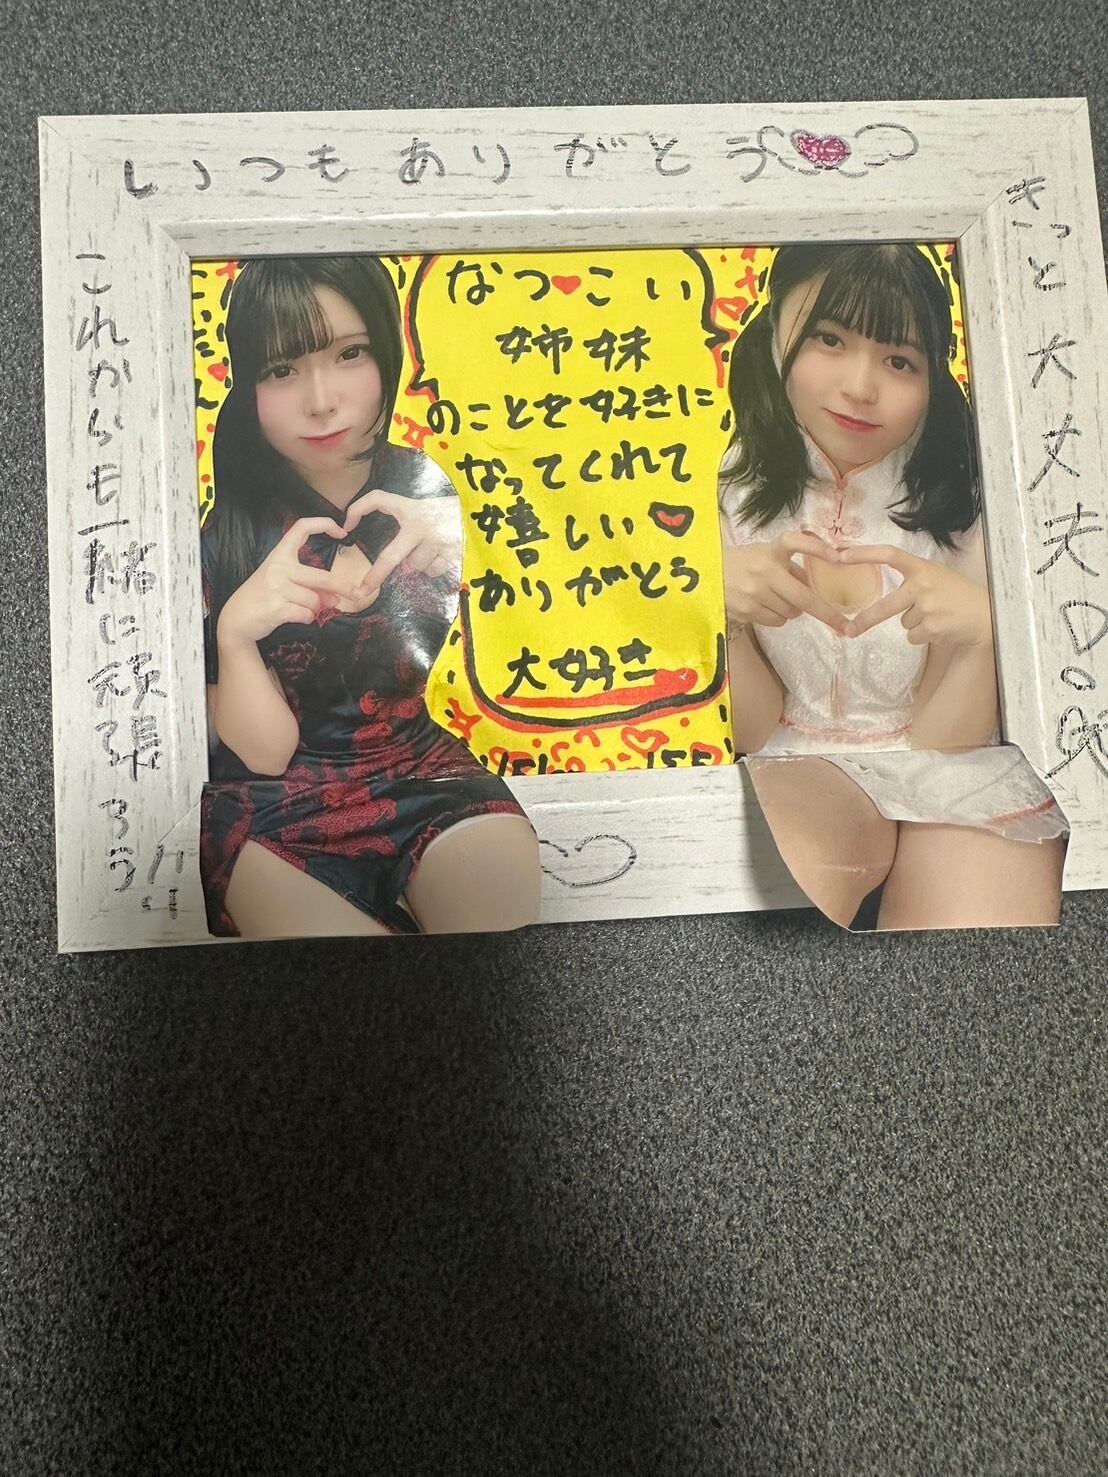 いつもありがとう
これからも一緒に頑張ろう
なつ♥こい
姉妹
のことを好きに
なってくれて
嬉しい♥
ありがとう
大好き
きっと大丈夫